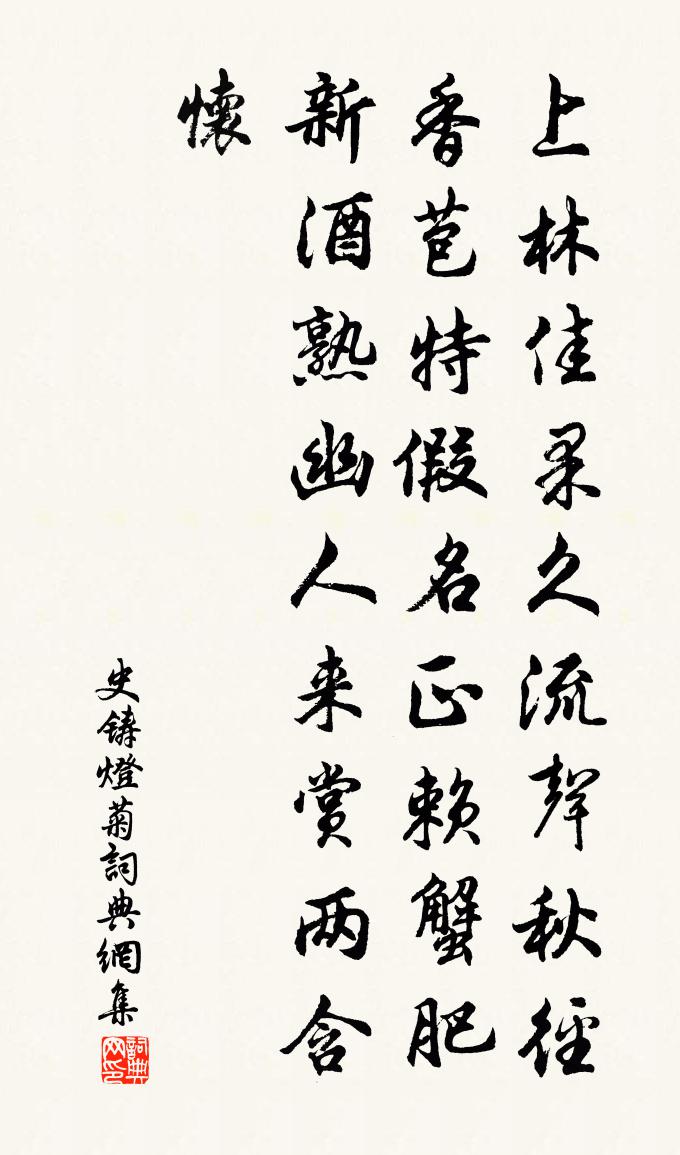 上林佳果久流聲秋徑
香苞特假名正赖蟹肥
新酒熟幽人来賞两含
懷
史鑄燈菊詞典網集
詞典网印